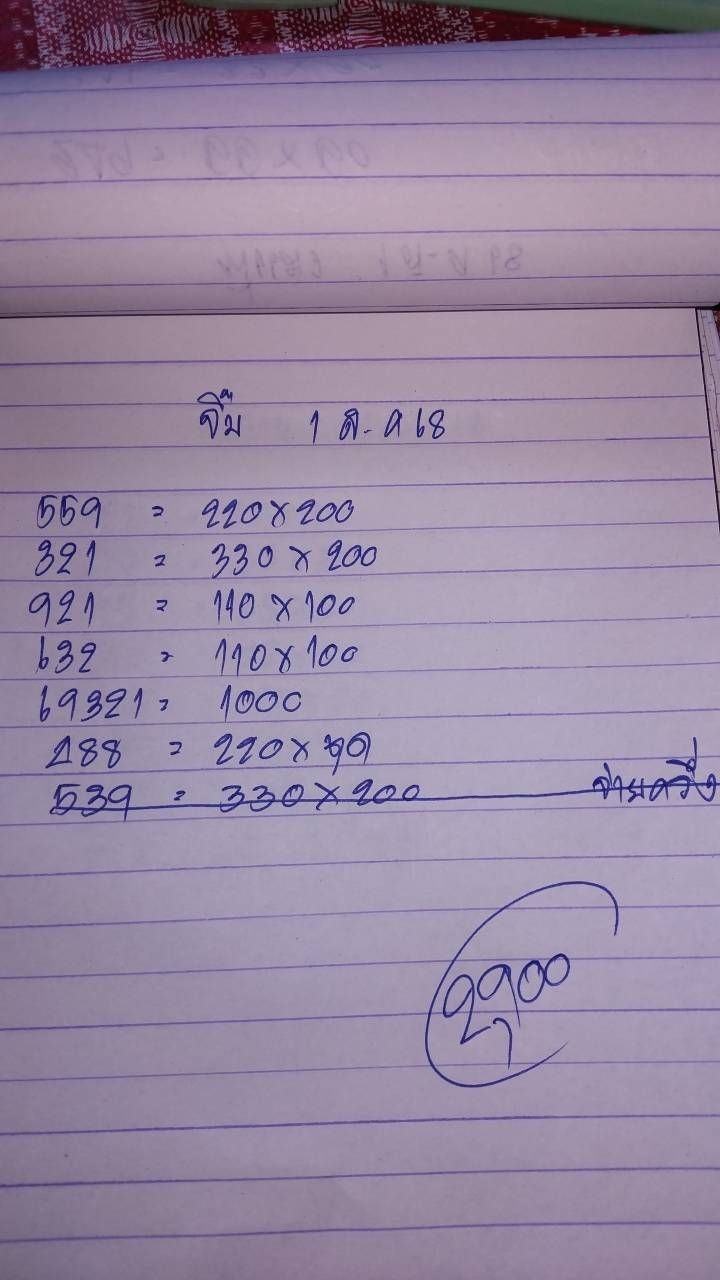 จิ๊บ 1 ส.ค 68
559 = 220x200
321 = 330x200
921 = 110x100
632 = 110x100
69321 = 1000
188 = 220x
539 = 330x200 จ่ายครึ่ง
2,900